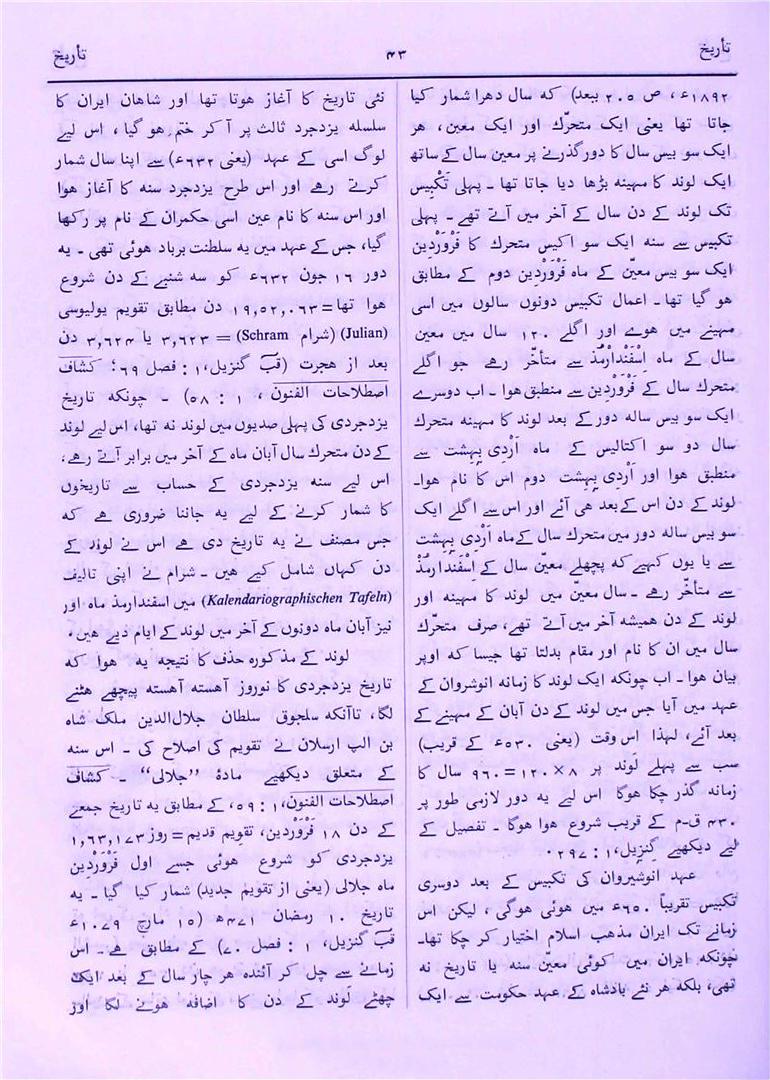 تأریخ
۴۳
تأریخ
۱۸۹۲ء، ص ۲۰۵ ببعد) کہ سال دھرا شمار کیا
جاتا تھا یعنی ایک متحرّک اور ایک معین، ھر
ایک سو بیس سال کا دور گذرنے پر معین سال کے ساتھ
ایک لوند کا مہینہ بڑھا دیا جاتا تھا ۔ پہلی تَکْبِیس
تک لوند کے دن سال کے آخر میں آتے تھے ۔ پہلی
تکبیس سے سنہ ایک سو اکیس متحرک کا فَرْوَرْدین
ایک سو بیس معیّن کے ماہ فَرْوَرْدین دوم کے مطابق
ھو گیا تھا ۔ اعمال تکبیس دونوں سالوں میں اسی
مہینے میں ھوے اور اگلے ۱۲۰ سال میں معین
سال کے ماہ اِسْفَندارمُذ سے متأخّر رھے جو اگلے
متحرک سال کے فَرْوَرْدین سے منطبق ھوا ۔ اب دوسرے
ایک سو بیس سالہ دور کے بعد لوند کا مہینہ متحرک
سال دو سو اکتالیس کے ماہ اَرْدِی بِہِشت سے
منطبق ھوا اور اَرْدِی بِہِشت دوم اس کا نام ھوا۔
لوند کے دن اس کے بعد ھی آئے اور اس سے اگلے ایک
سو بیس سالہ دور میں متحرک سال کے ماہ اَرْدِی بِہِشت
سے یا یوں کہیے کہ پچھلے معیّن سال کے اِسْفَندارمُذْ
سے متأخّر رھے ۔ سال معیّن میں لوند کا مہینہ اور
لوند کے دن ھمیشہ آخر میں آتے تھے، صرف متحرّک
سال میں ان کا نام اور مقام بدلتا تھا جیسا کہ اوپر
بیان ھوا ۔ اب چونکہ ایک لوند کا زمانہ انوشروان کے
عہد میں آیا جس میں لوند کے دن آبان کے مہینے کے
بعد آئے، لہذا اس وقت (یعنی ۵۳۰ء کے قریب)
سب سے پہلے لَوند پر ۸×۱۲۰=۹۶۰ سال کا
زمانہ گذر چکا ھوگا اس لیے یہ دور لازمی طور پر
۴۳۰ ق۔م کے قریب شروع ھوا ھوگا ۔ تفصیل کے
لیے دیکھیے گِنزیل، ۱ : ۲۹۷ ۰
عہد انوشیروان کی تکبیس کے بعد دوسری
تکبیس تقریباً ۶۵۰ء میں ھوئی ھوگی، لیکن اس
زمانے تک ایران مذھب اسلام اختیار کر چکا تھا۔
چونکہ ایران میں کوئی معیّن سنہ یا تاریخ نہ
تھی، بلکہ ھر نئے بادشاہ کے عہد حکومت سے ایک
نئی تاریخ کا آغاز ھوتا تھا اور شاھان ایران کا
سلسلہ یزدجرد ثالث پر آ کر ختم ھو گیا، اس لیے
لوگ اسی کے عہد (یعنی ۶۳۲ء) سے اپنا سال شمار
کرتے رھے اور اس طرح یزدجرد سنہ کا آغاز ھوا
اور اس سنہ کا نام عین اسی حکمران کے نام پر رکھا
گیا، جس کے عہد میں یہ سلطنت برباد ھوئی تھی ۔ یہ
دور ۱۶ جون ۶۳۲ء کو سہ شنبے کے دن شروع
ھوا تھا=۱۹,۵۲,۰۶۳ دن مطابق تقویم یولیوسی
(Julian) (شرام Schram) = ۳,۶۲۳ یا ۳,۶۲۴ دن
بعد از ھجرت (قبَ گنزیل، ۱ : فصل ۶۹؛ کشاف
اصطلاحات الفنون، ۱ : ۵۸) ۔ چونکہ تاریخ
یزدجردی کی پہلی صدیوں میں لوند نہ تھا، اس لیے لوند
کے دن متحرک سال آبان ماہ کے آخر میں برابر آتے رھے،
اس لیے سنہ یزدجردی کے حساب سے تاریخوں
کا شمار کرنے کے لیے یہ جاننا ضروری ھے کہ
جس مصنف نے یہ تاریخ دی ھے اس نے لوند کے
دن کہاں شامل کیے ھیں ۔ شرام نے اپنی تالیف
(Kalendariographischen Tafeln) میں اسفندارمذ ماہ اور
نیز آبان ماہ دونوں کے آخر میں لوند کے ایام دیے ھیں۰
لوند کے مذکورہ حذف کا نتیجہ یہ ھوا کہ
تاریخ یزدجردی کا نوروز آھستہ آھستہ پیچھے ھٹنے
لگا، تاآنکہ سلجوق سلطان جلال‌الدین ملک شاہ
بن الپ ارسلان نے تقویم کی اصلاح کی ۔ اس سنہ
کے متعلق دیکھیے مادۂ ”جلالی“ ۔ کشاف
اصطلاحات الفنون، ۱ : ۵۹، کے مطابق یہ تاریخ جمعے
کے دن ۱۸ فَرْوَردین، تقویم قدیم=روز ۱,۶۳,۱۷۳
یزدجردی کو شروع ھوئی جسے اول فَرْوَرْدین
ماہ جلالی (یعنی از تقویم جدید) شمار کیا گیا ۔ یہ
تاریخ ۱۰ رمضان ۴۷۱ھ (۱۵ مارچ ۱۰۷۹ء
قبَ گنزیل، ۱ : فصل ۷۰) کے مطابق ھے ۔ اس
زمانے سے چل کر آئندہ ھر چار سال کے بعد ایک
چھٹے لَوند کے دن کا اضافہ ھونے لگا اور